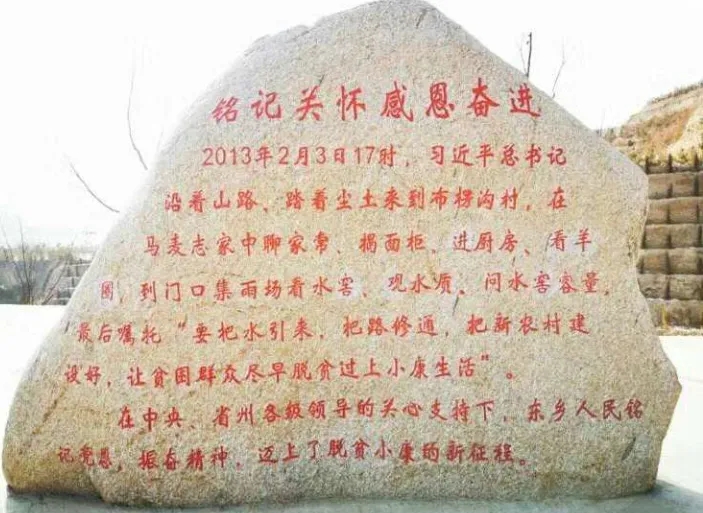 铭记关怀感恩奋进
2013年2月3日17时，习近平总书记
沿着山路、踏着尘土来到布楞沟村，在
马麦志家中聊家常、揭面柜、进厨房、看羊
圈，到门口集雨场看水窖、观水质、问水窖容量，
最后嘱托“要把水引来，把路修通，把新农村建
设好，让贫困群众尽早脱贫过上小康生活”。
在中央、省州各级领导的关心支持下，东乡人民铭
记党恩，振奋精神，迈上了脱贫小康的新征程。